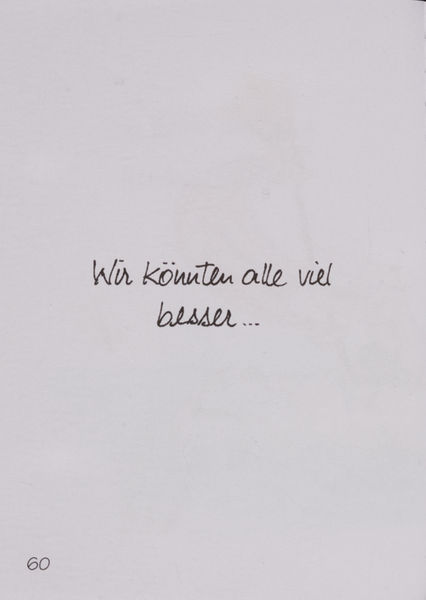 Wir könnten alle viel
besser...
60